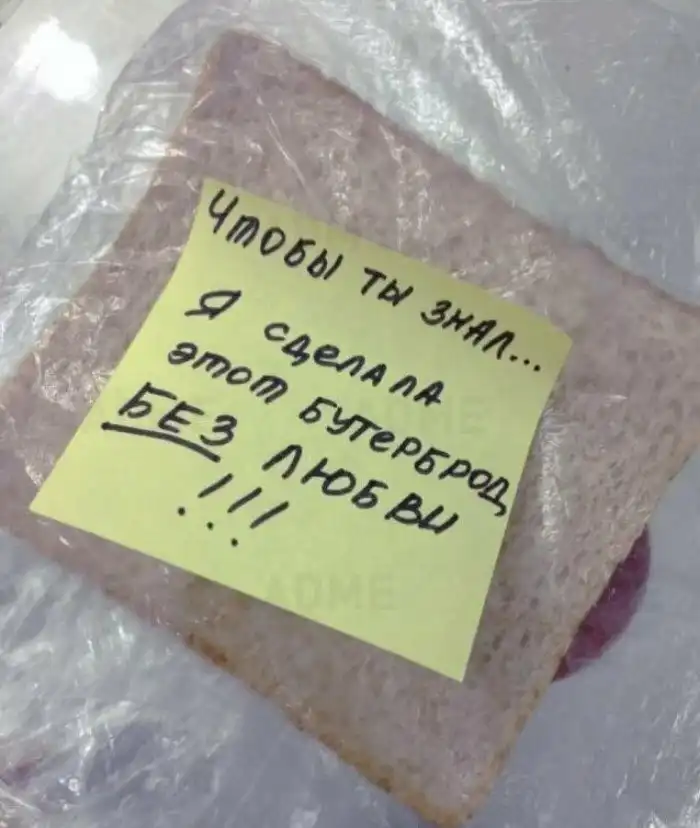 Чтобы ты знал...
Я сделала
этот бутерброд
БЕЗ любви
!!!
ADME
ADME